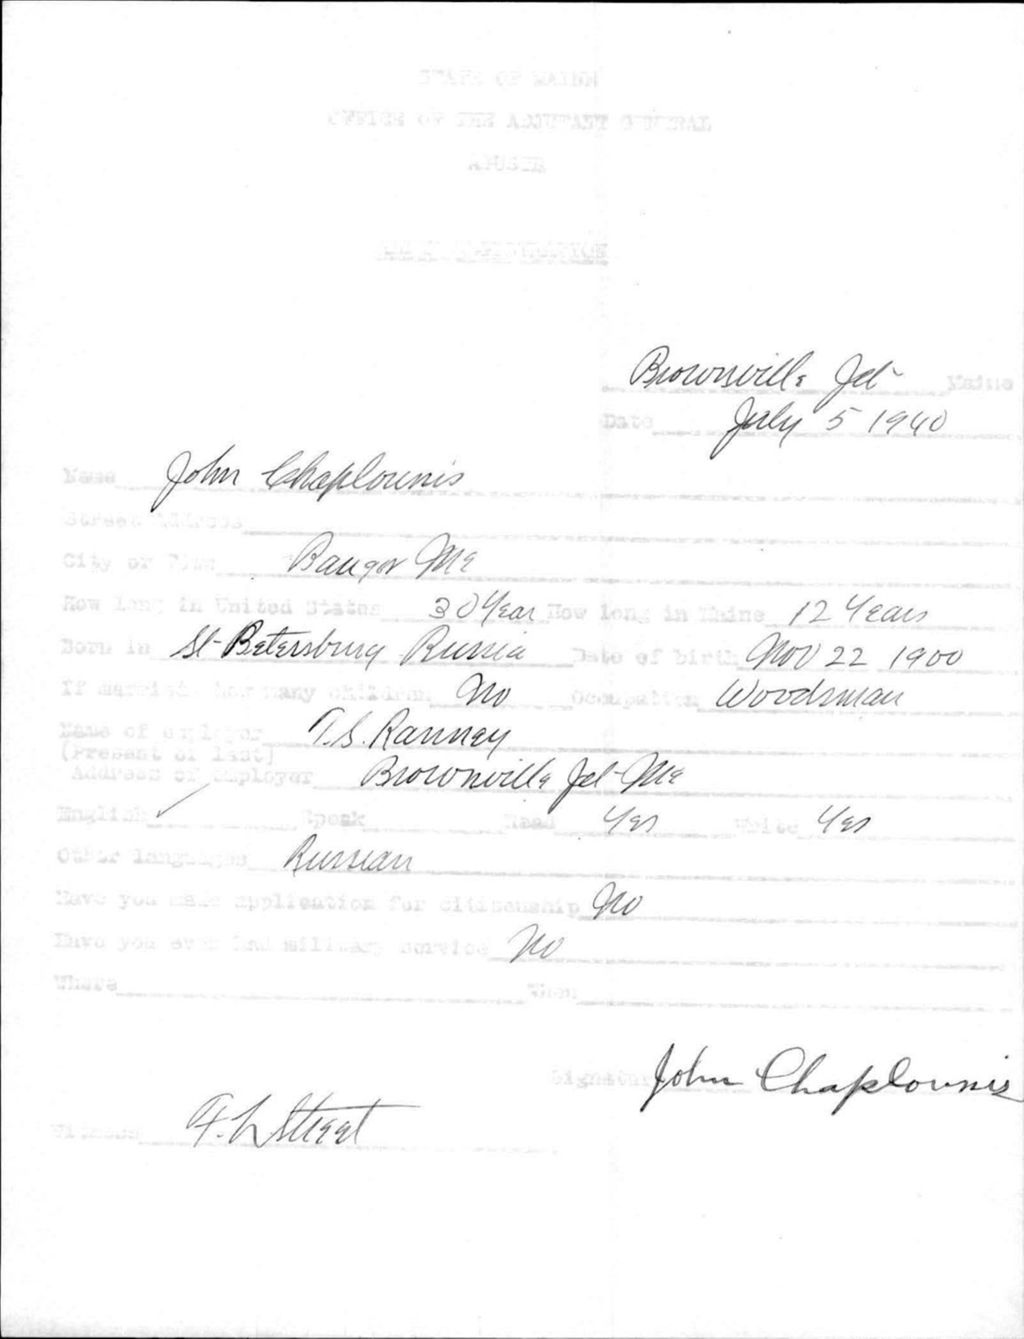 STATE OF MAINE
OFFICE OF THE ADJUTANT GENERAL
AUGUSTA
ALIEN REGISTRATION
Brownville Jct Maine
Date July 5 1940
Name John Chaplounis
Street Address
City or Town Bangor Me
How long in United States 30 Year How long in Maine 12 Years
Born in St Petersburg Russia Date of birth Nov 22 1900
If married, how many children No Occupation Woodsman
Name of employer T.S. Ranney
(Present or last)
Address of employer Brownville Jct Me
English Speak Read Yes Write Yes
Other languages Russian
Have you made application for citizenship No
Have you ever had military service No
Where When
Signature John Chaplounis
Witness